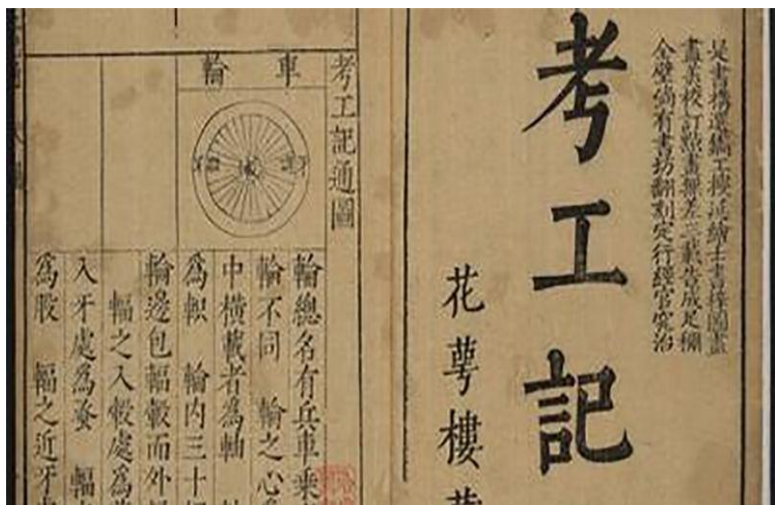 是書
校訂點畫無差三載告成足稱
全璧倘有書坊翻刻定行經官究治
考工記
花萼樓
考工記通圖
車輪
輪總名有兵車乘
輪不同 輪之心
中橫載者為軸
為軹 輪內三十
輪邊包輻轂而外
輻之入轂處為
入牙處為蚤 輻
為股 輻之近牙